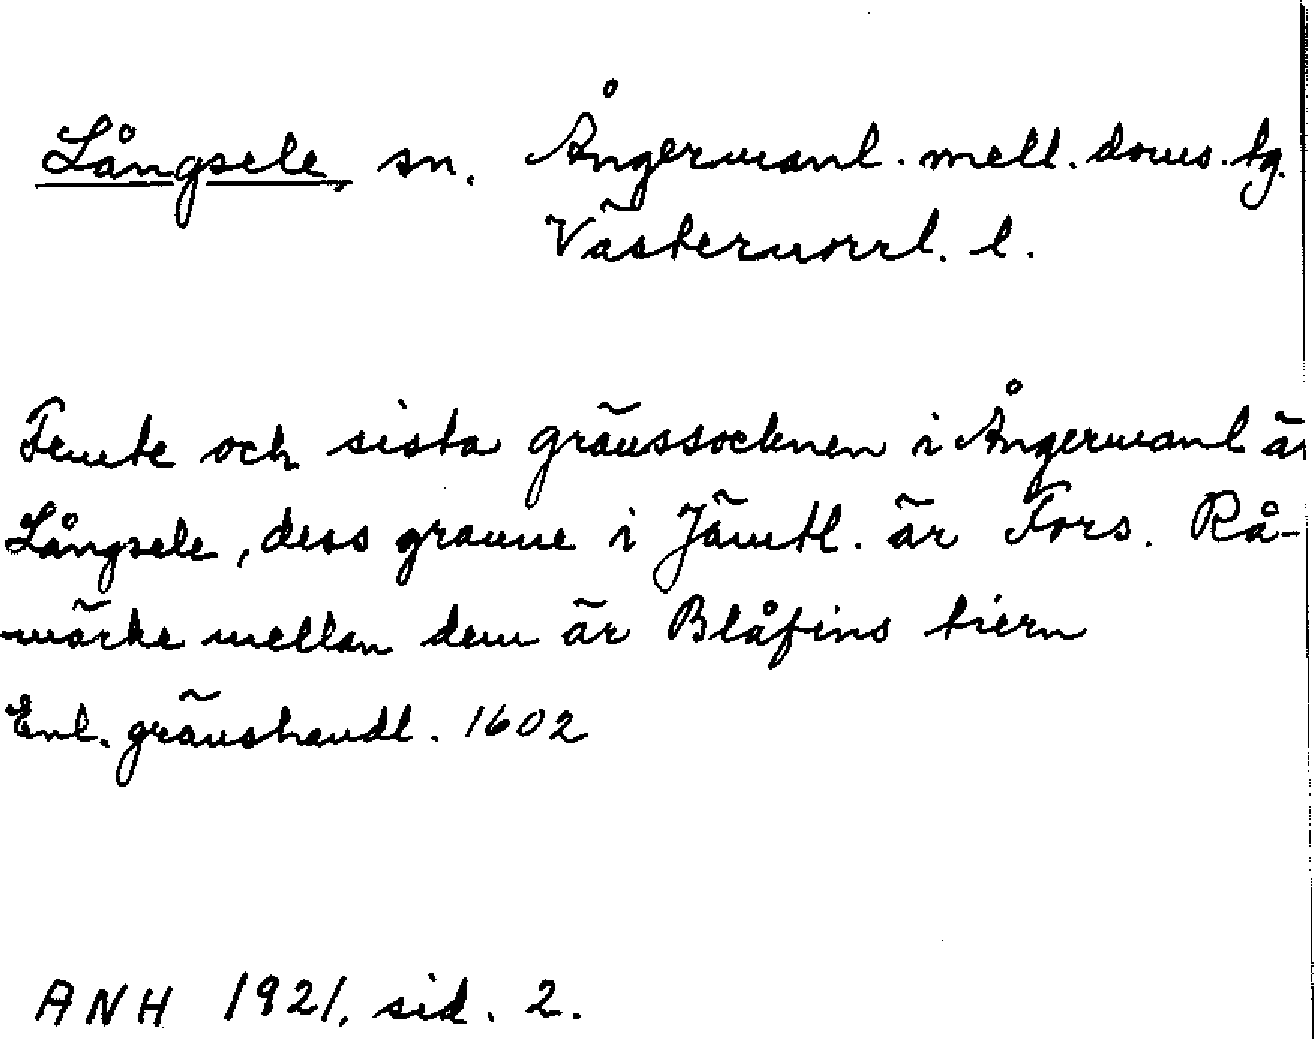 Långsele, sn. Ångermanl. mell. doms. tg.
Västernorrl. l.
Femte och sista gränssocknen i Ångermanl är
Långsele, dess granne i Jämtl. är Fors. Rå-
märke mellan dem är Blåfins tiern
Enl. gränshandl. 1602
ANH 1921, sid. 2.